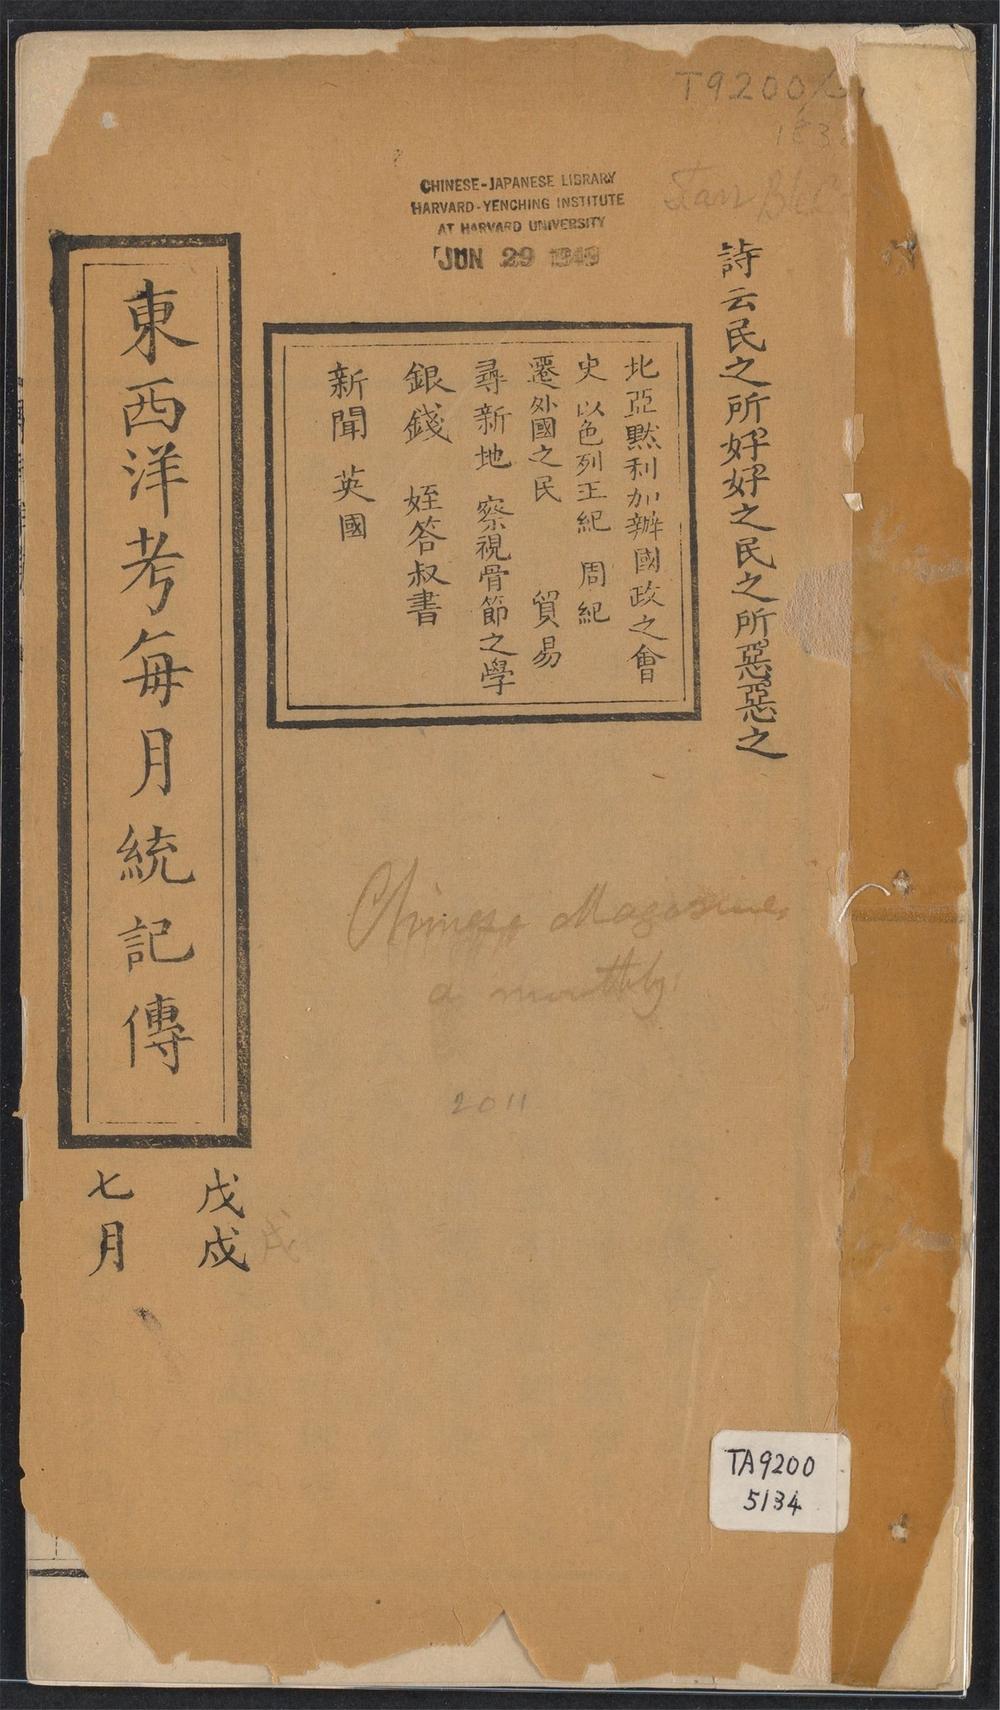 T9200
CHINESE-JAPANESE LIBRARY
HARVARD-YENCHING INSTITUTE
AT HARVARD UNIVERSITY
JUN 29 1949
詩云民之所好好之民之所惡惡之
北亞黙利加辦國政之會
史 以色列王紀 周紀
遷外國之民 貿易
尋新地 察視骨節之學
銀錢 姪答叔書
新聞 英國
東西洋考每月統記傳
戊戌
七月
Chinese Magazine
a monthly
2011
TA9200
5134